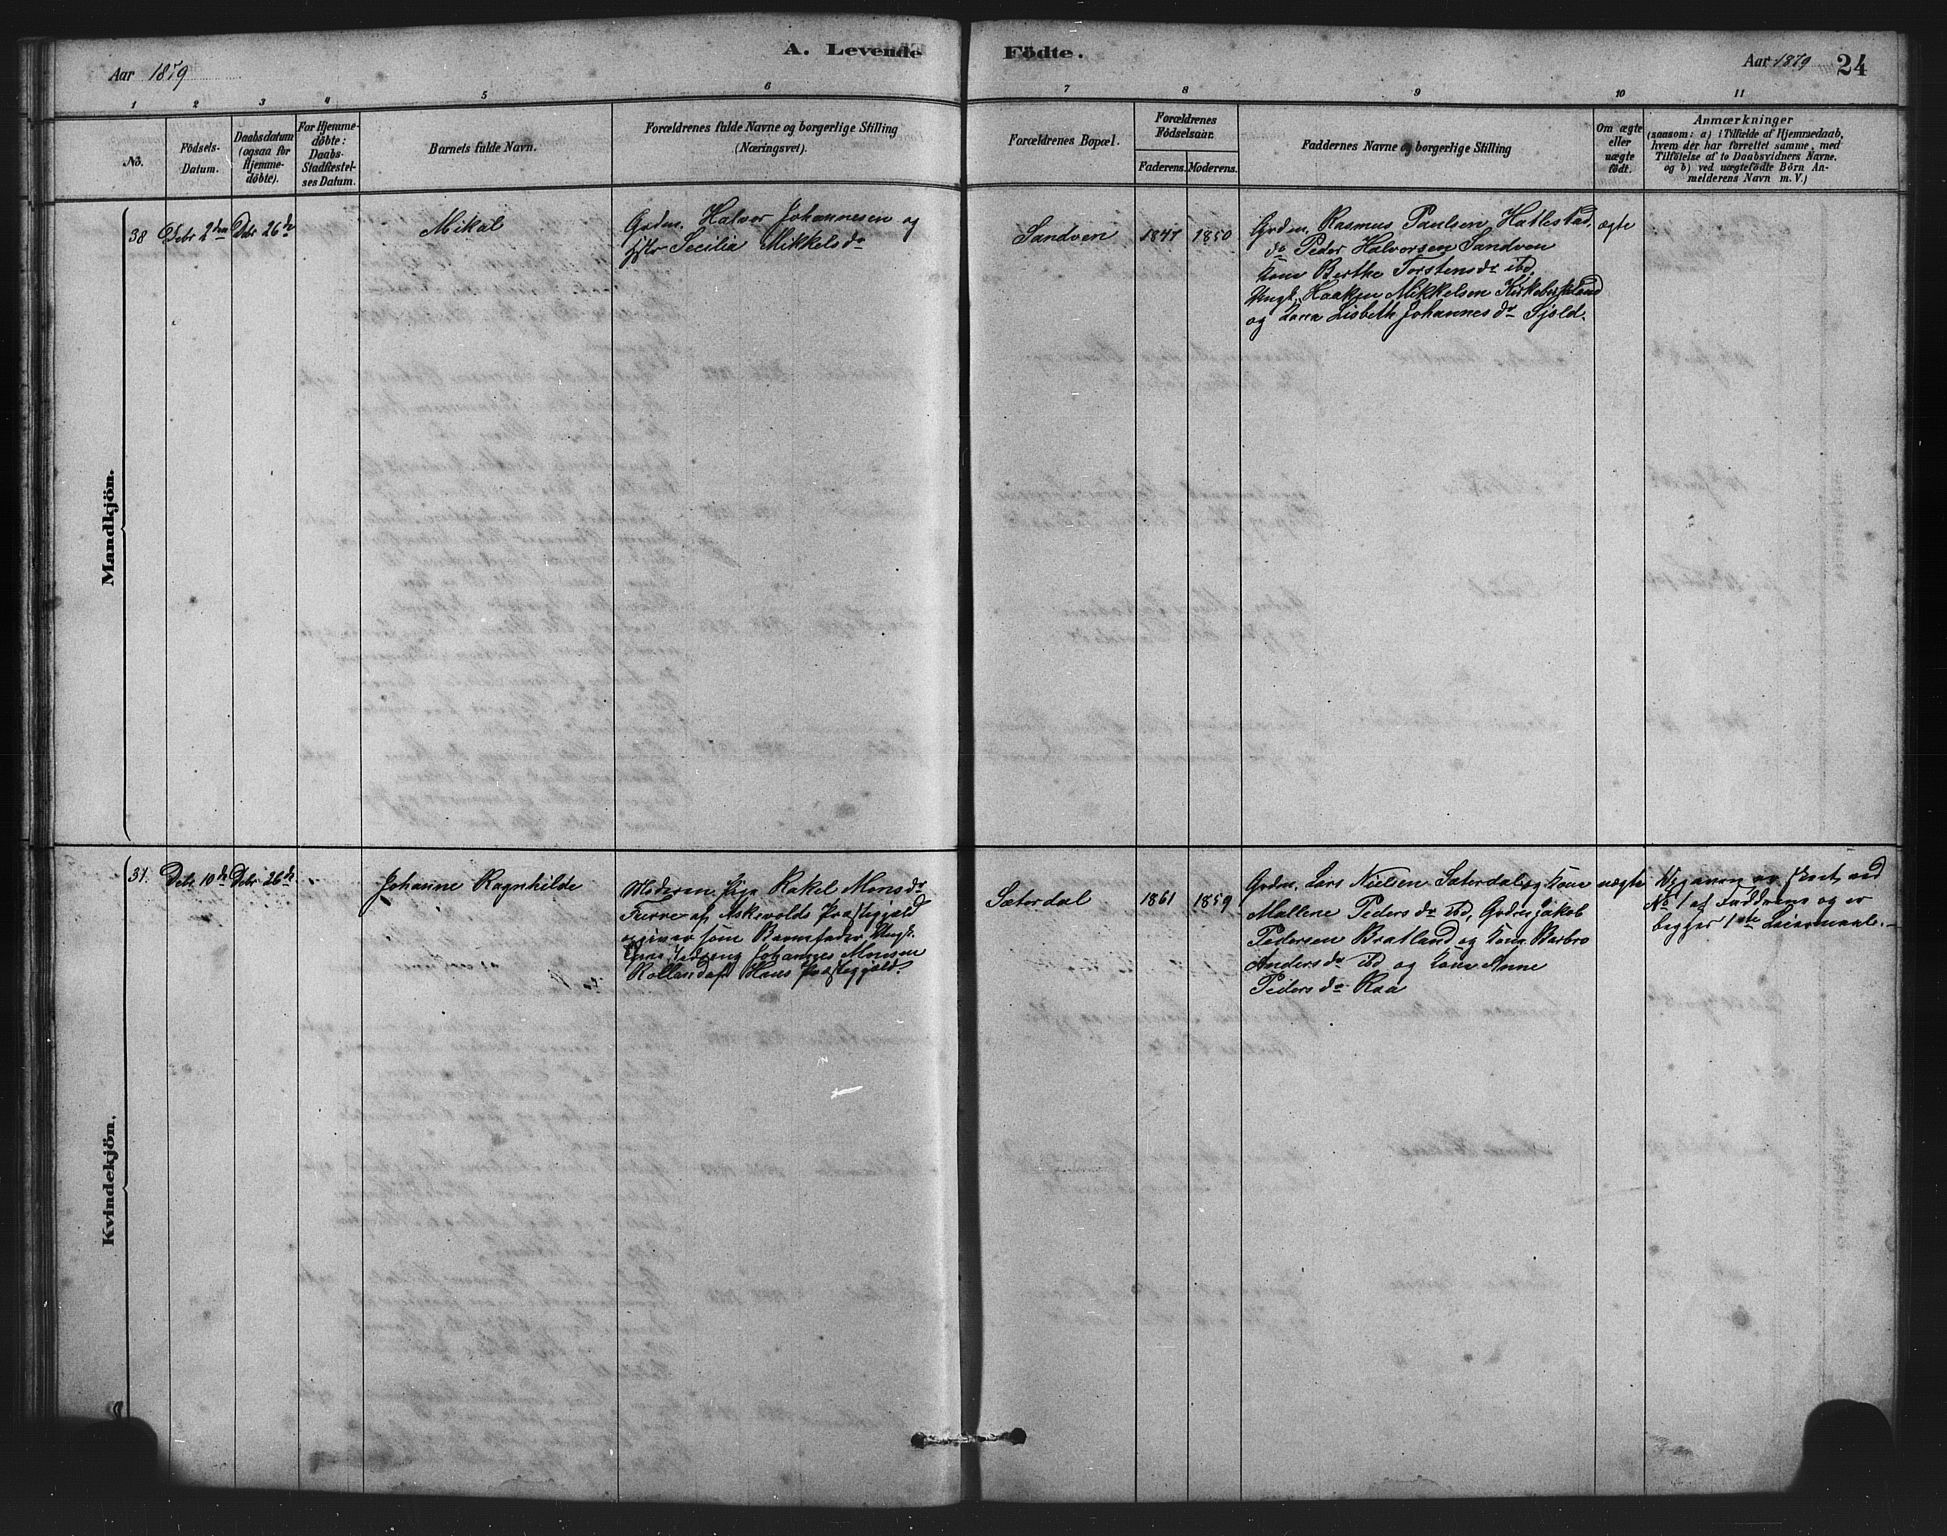 A. Levende Födte.
Aar 1879
Aar 1879 24
1 2 3 4 5 6 7 8 9 10 11
No.
Födsels-
Datum.
Daabsdatum
(ogsaa for
Hjemme-
döbte).
For Hjemme-
döbte:
Daabs-
Stadfæstel-
ses Datum.
Barnets fulde Navn.
Forældrenes fulde Navne og borgerlige Stilling
(Næringsvei).
Forældrenes Bopæl.
Forældrenes
Födselsaar.
Faderens. Moderens.
Faddernes Navne og borgerlige Stilling
Om ægte
eller
uægte
födt.
Anmærkninger
(saasom: a) i Tilfælde af Hjemmedaab,
hvem der har forrettet samme, med
Tilföielse af to Daabsvidners Navne,
og b) ved uægtefödte Börn An-
melderens Navn m. V.)
Mandkjön.
38 Debr 2den Debr 26de
Mikal
Grdm. Halvor Johannesen og
Secilia Mikkelsdr
Sandven 1847 1850
Grdm. Rasmus Paulsen Hatlestad,
do Peder Halvorsen Sandven
Kone Berthe Torstensdr ibd,
Ungk. Haakon Mikkelsen
og Lisbeth Johannesdr
ægte
Kvindekjön.
31. Debr 10de Debr 26de
Johanne Ragnhilde
Moderen Pige Rakel Monsdr
af Askevolds Præstegjæld
opgiver som Barnefader Ungk.
Johannes Monsen
Præstegjæld.
Sæterdal 1861 1859
Grdm. Lars Nielsen Sæterdal og Kone
Mallene Pedersdr ibd, Grdm Jakob
Pedersen Bratland og Kone Barbro
Andersdr ibd og Anne
Pedersdr Raa
uægte
No 1 af Fadderne og er
begges 1ste Leiermaal.